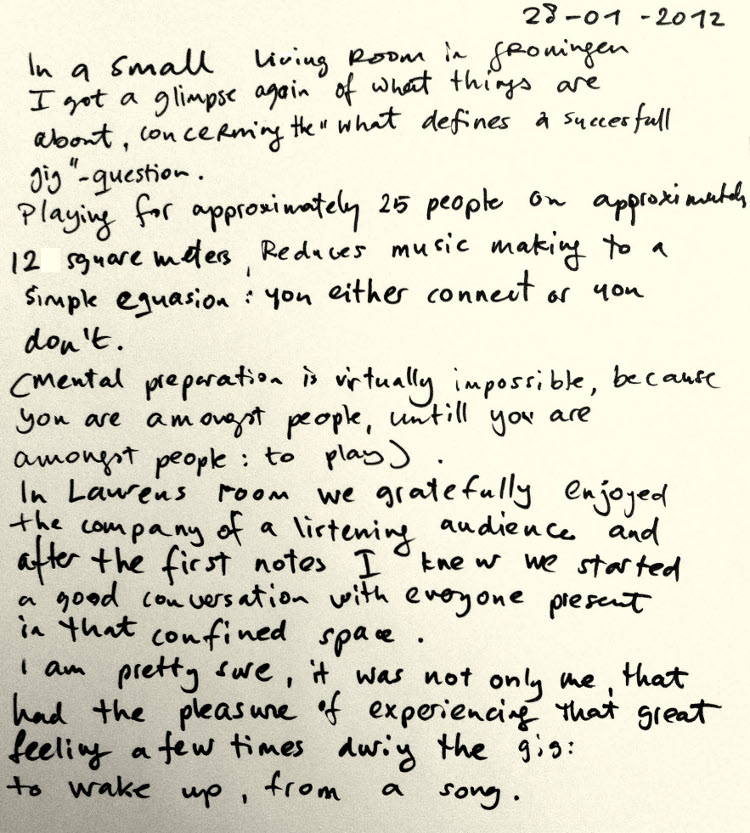 28-01-2012
In a small living room in Groningen
I got a glimpse again of what things are
about, concerning the "what defines a succesfull
gig"-question.
Playing for approximately 25 people on approximately
12 square meters, Reduces music making to a
simple equasion: you either connect or you
don't.
(mental preparation is virtually impossible, because
you are amongst people, untill you are
amongst people: to play).
In Laurens room we gratefully enjoyed
the company of a listening audience and
after the first notes I knew we started
a good conversation with everyone present
in that confined space.
I am pretty sure, it was not only me, that
had the pleasure of experiencing that great
feeling a few times during the gig:
to wake up, from a song.